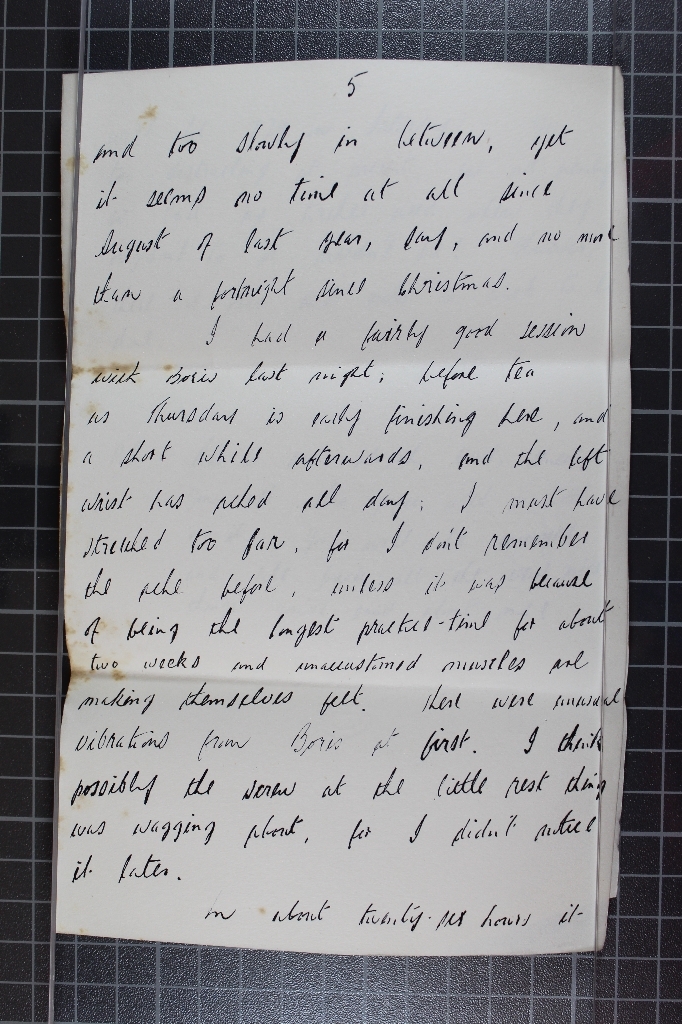 5
and too slowly in between, yet
it seems no time at all since
August of last year, say, and no more
than a fortnight since Christmas.
I had a fairly good session
with Boris last night; before tea
as Thursday is early finishing here, and
a short while afterwards, and the left
wrist has ached all day; I must have
stretched too far, for I don't remember
the ache before, unless it was because
of being the longest practice-time for about
two weeks and unaccustomed muscles are
making themselves felt. There were unusual
vibrations from Boris at first. I think
possibly the screw at the little rest thing
was wagging about, for I didn't notice
it later.
In about twenty-six hours it